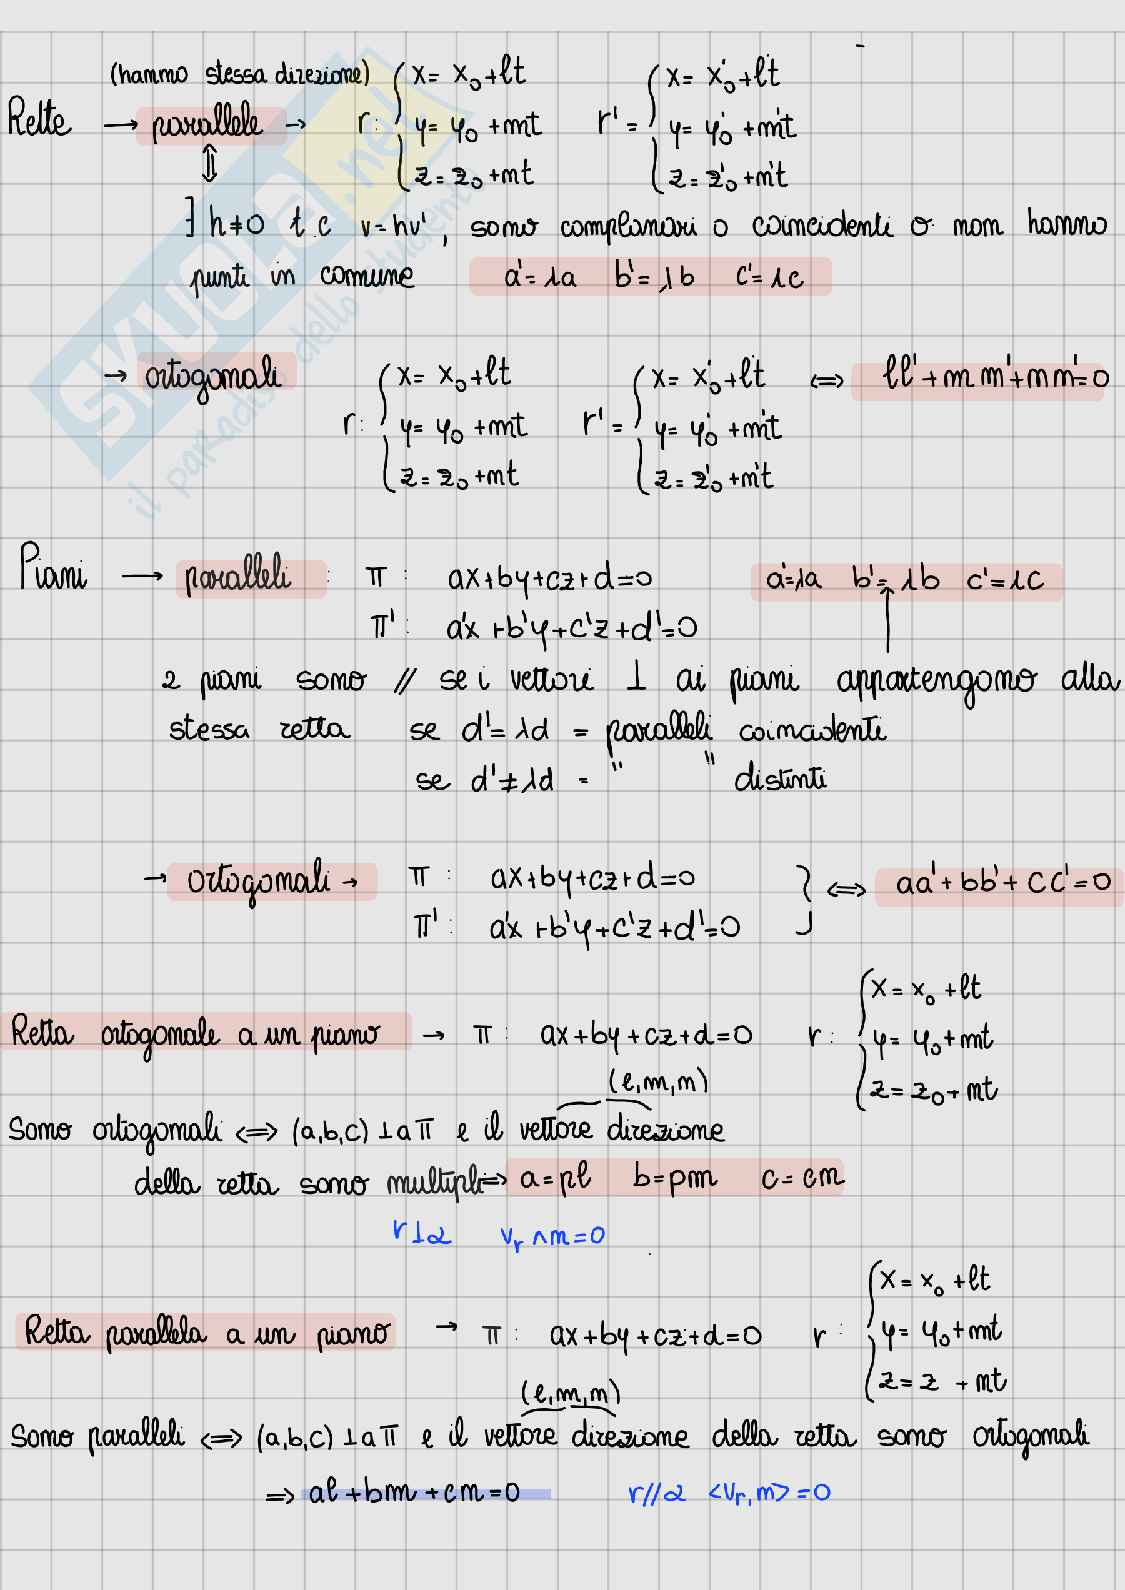 (hanno stessa direzione)
Rette → parallele → r: { x = x₀ + lt   r' = { x = x'₀ + l't
y = y₀ + mt   y = y'₀ + m't
⇕   z = z₀ + nt   z = z'₀ + n't
∃ h≠0 t.c v=hv', sono complanari o coincidenti o non hanno
punti in comune   a'=λa   b'=λb   c'=λc
→ ortogonali   r: { x = x₀ + lt   r' = { x = x'₀ + l't   ⇔   ll'+mm'+nn'=0
y = y₀ + mt   y = y'₀ + m't
z = z₀ + nt   z = z'₀ + n't
Piani → paralleli : π : ax+by+cz+d=0   a'=λa   b'=λb   c'=λc
π' : a'x+b'y+c'z+d'=0
2 piani sono // se i vettori ⊥ ai piani appartengono alla
stessa retta   se d'=λd = paralleli coincidenti
se d'≠λd = " " distinti
→ ortogonali → π : ax+by+cz+d=0 } ⇔ aa'+bb'+cc'=0
π' : a'x+b'y+c'z+d'=0
Retta ortogonale a un piano → π : ax+by+cz+d=0   r: { x = x₀ + lt
y = y₀ + mt
z = z₀ + nt
(l,m,n)
Sono ortogonali ⇔ (a,b,c) ⊥ a π e il vettore direzione
della retta sono multipli ⇒ a=pl   b=pm   c=cn
r⊥α   vᵣ ∧ n = 0
Retta parallela a un piano → π : ax+by+cz+d=0   r : { x = x₀ + lt
y = y₀ + mt
z = z + nt
(l,m,n)
Sono paralleli ⇔ (a,b,c) ⊥ a π e il vettore direzione della retta sono ortogonali
⇒ al+bm+cn=0   r//α   <vᵣ,n>=0
SKUOLA.net
il paradiso dello studente